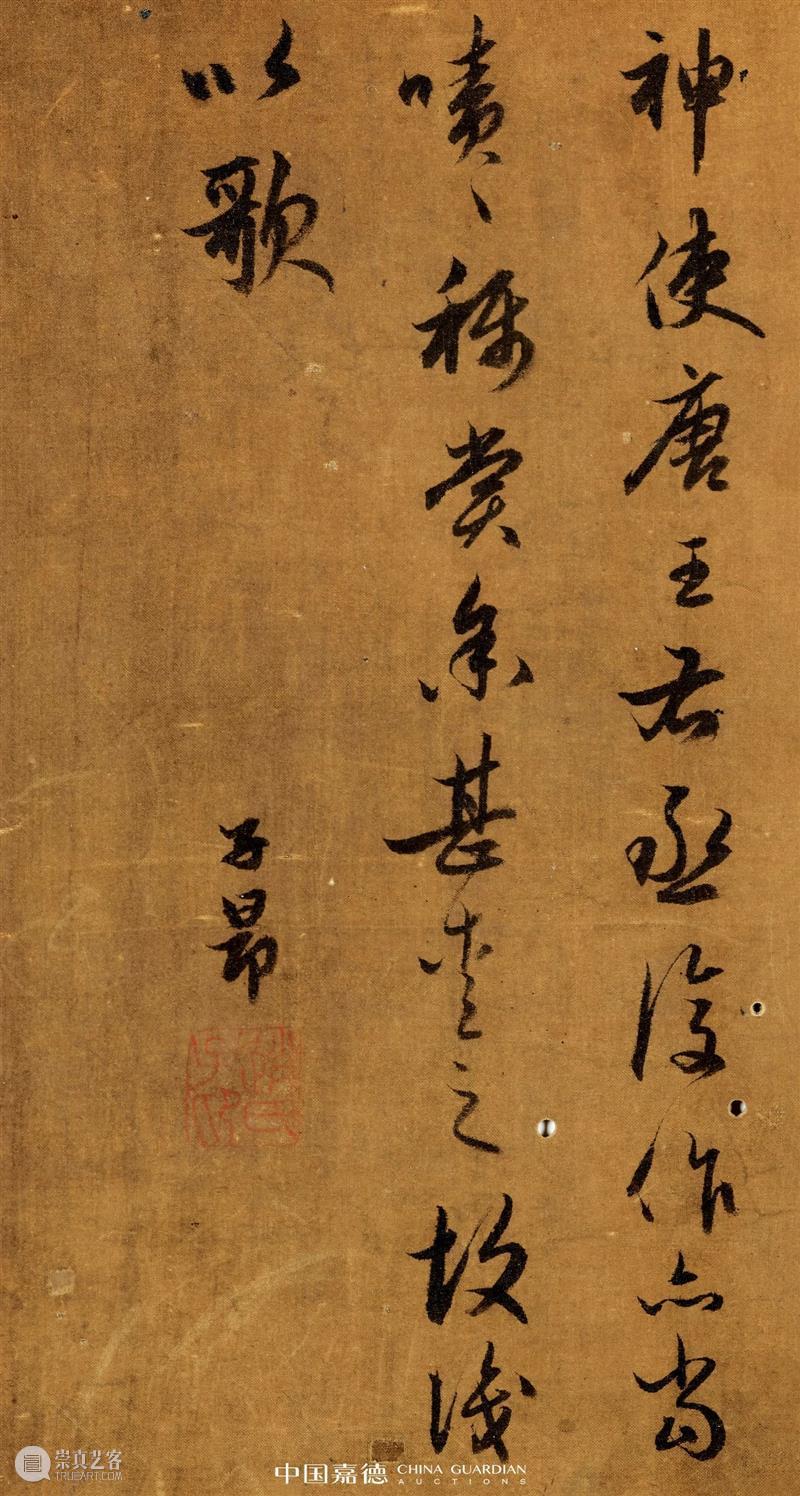 神使唐王右丞復作亦當
嘖〻稱賞余甚愛之故識
以歌
子昂
趙氏子昂
中国嘉德 CHINA GUARDIAN
AUCTIONS
崇真艺客
TRUEART.COM